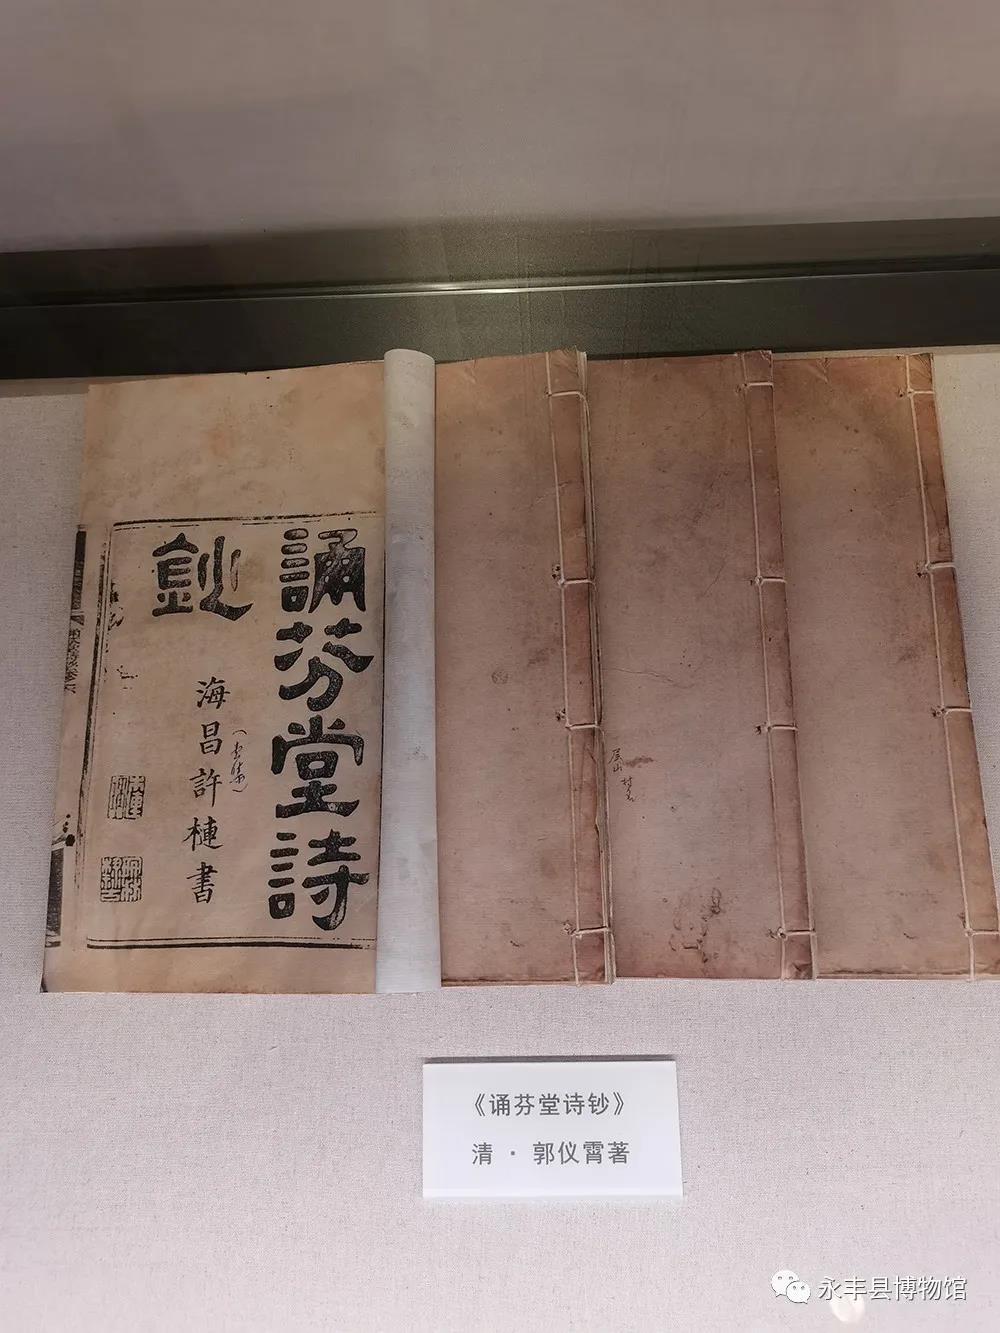 誦芬堂詩
鈔
海昌許槤書
《诵芬堂诗钞》
清 · 郭仪霄著
永丰县博物馆